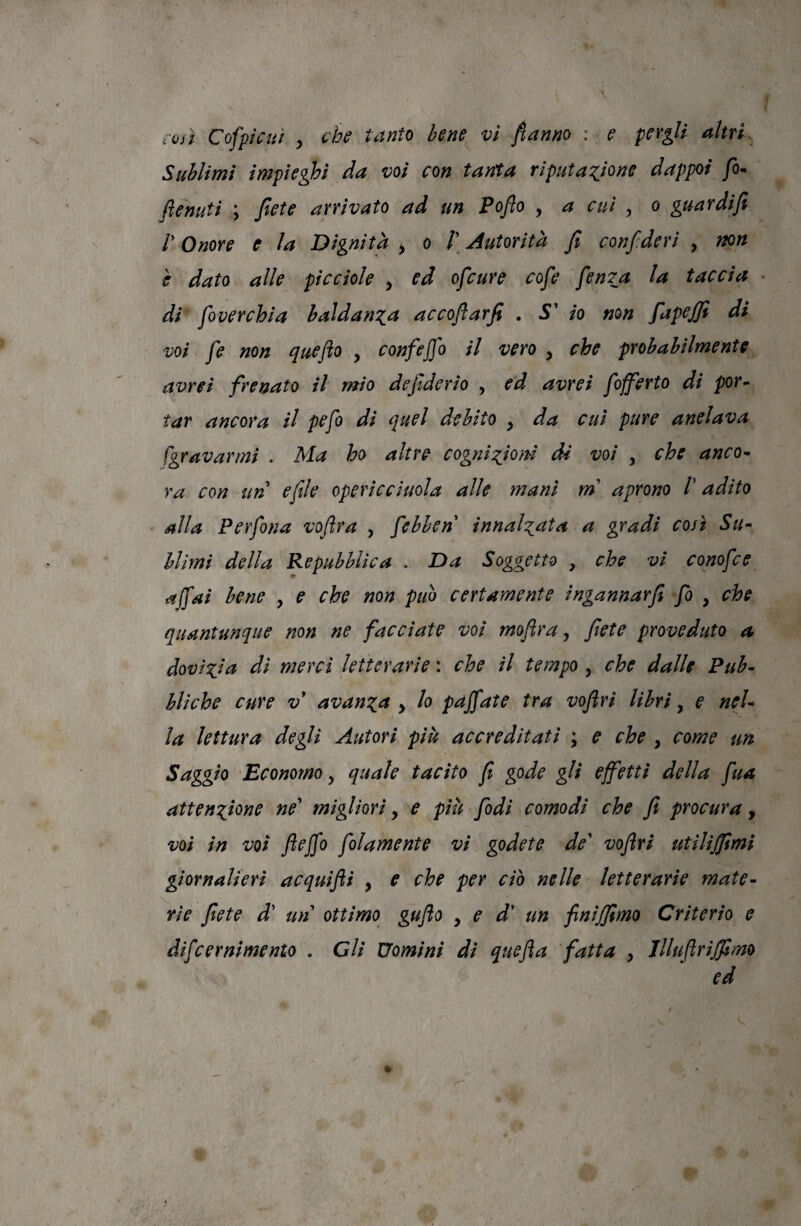 così Coſpicui , che tanto bene vi ſtanno : e pergli altri
Sublimi impieghi da voi con tanta riputazione dappoi ſo-
ſtenuti ; ſiete arrivato ad un Poſto , a cui , o guardiſi
l' Onore e la Dignità , o l' Autorità ſi conſideri , non
è dato alle picciole , ed oſcure coſe ſenza la taccia
di ſoverchia baldanza accoſtarſi . S' io non ſapeſſi di
voi ſe non queſto , confeſſo il vero , che probabilmente
avrei frenato il mio deſiderio , ed avrei ſofferto di por-
tar ancora il peſo di quel debito , da cui pure anelava
ſgravarmi . Ma ho altre cognizioni di voi , che anco-
ra con un' eſile opericciuola alle mani m' aprono l' adito
alla Perſona voſtra , ſebben' innalzata a gradi così Su-
blimi della Repubblica . Da Soggetto , che vi conoſce
aſſai bene , e che non può certamente ingannarſi ſo , che
quantunque non ne facciate voi moſtra, ſiete proveduto a
dovizia di merci letterarie : che il tempo , che dalle Pub-
bliche cure v' avanza , lo paſſate tra voſtri libri , e nel-
la lettura degli Autori più accreditati ; e che , come un
Saggio Economo, quale tacito ſi gode gli effetti della ſua
attenzione ne' migliori , e più ſodi comodi che ſi procura ,
voi in voi ſteſſo ſolamente vi godete de' voſtri utiliſſimi
giornalieri acquiſti , e che per ciò nelle letterarie mate-
rie ſiete d' un' ottimo guſto , e d' un finiſſimo Criterio e
diſcernimento . Gli Uomini di queſta fatta , Illuſtriſſimo
ed